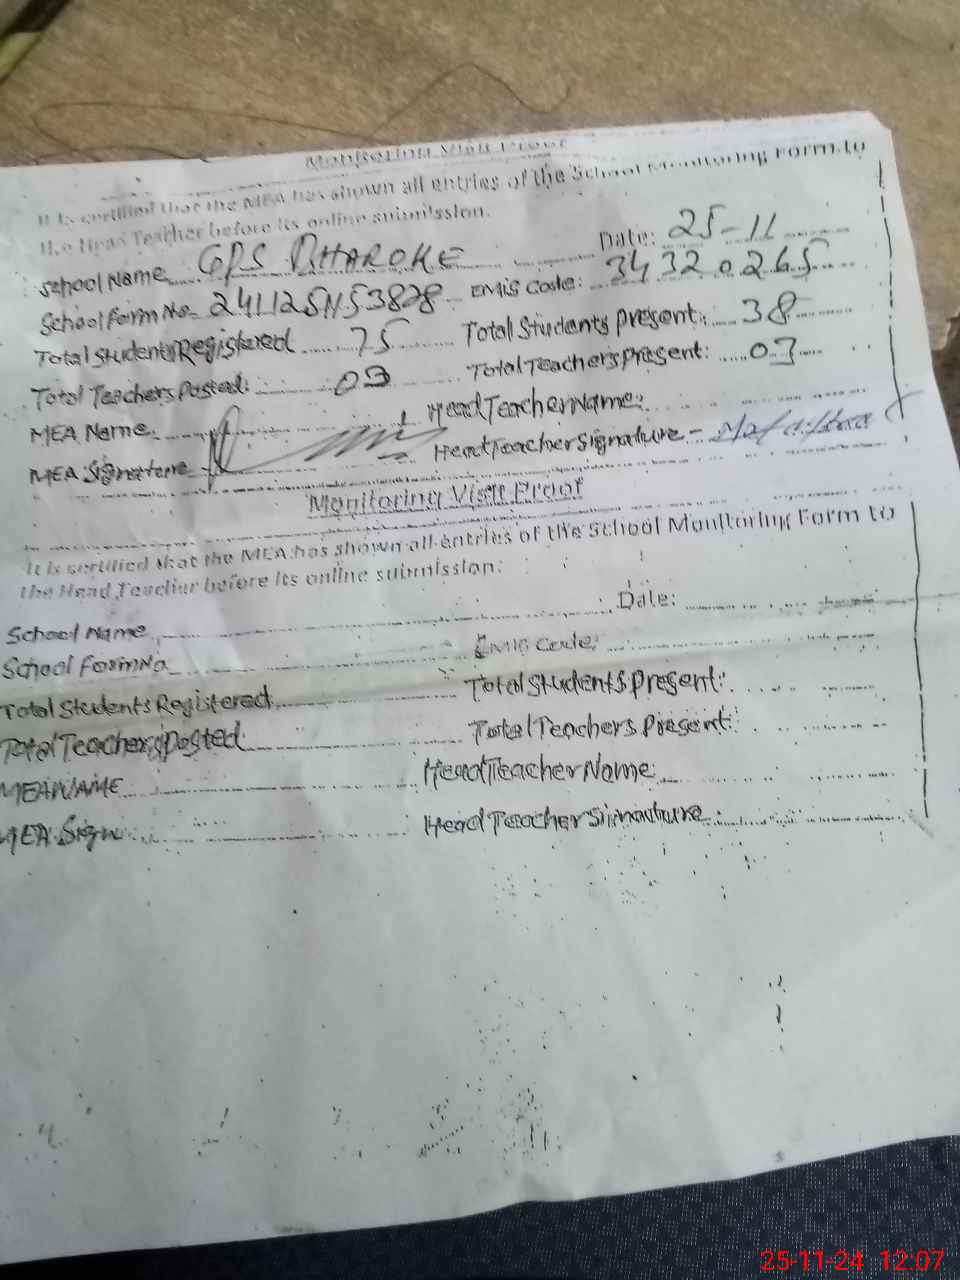 Monitoring Visit Proof
It is certified that the MEA has shown all entries of the School Monitoring Form to
the Head Teacher before its online submission.
School Name GPS DHAROKE Date: 25-11
School Form No. 241125N53828 EMIS Code: 34320265
Total Students Registered 75 Total Students Present: 38
Total Teachers Posted: 03 Total Teachers Present: 03
MEA Name: Head Teacher Name:
MEA Signature Head Teacher Signature
Monitoring Visit Proof
It is certified that the MEA has shown all entries of the School Monitoring Form to
the Head Teacher before its online submission:
School Name Date:
School Form No. EMIS Code:
Total Students Registered Total Students Present:
Total Teachers Posted Total Teachers Present:
MEA NAME Head Teacher Name
MEA Sign: Head Teacher Simature:
25-11-24 12:07